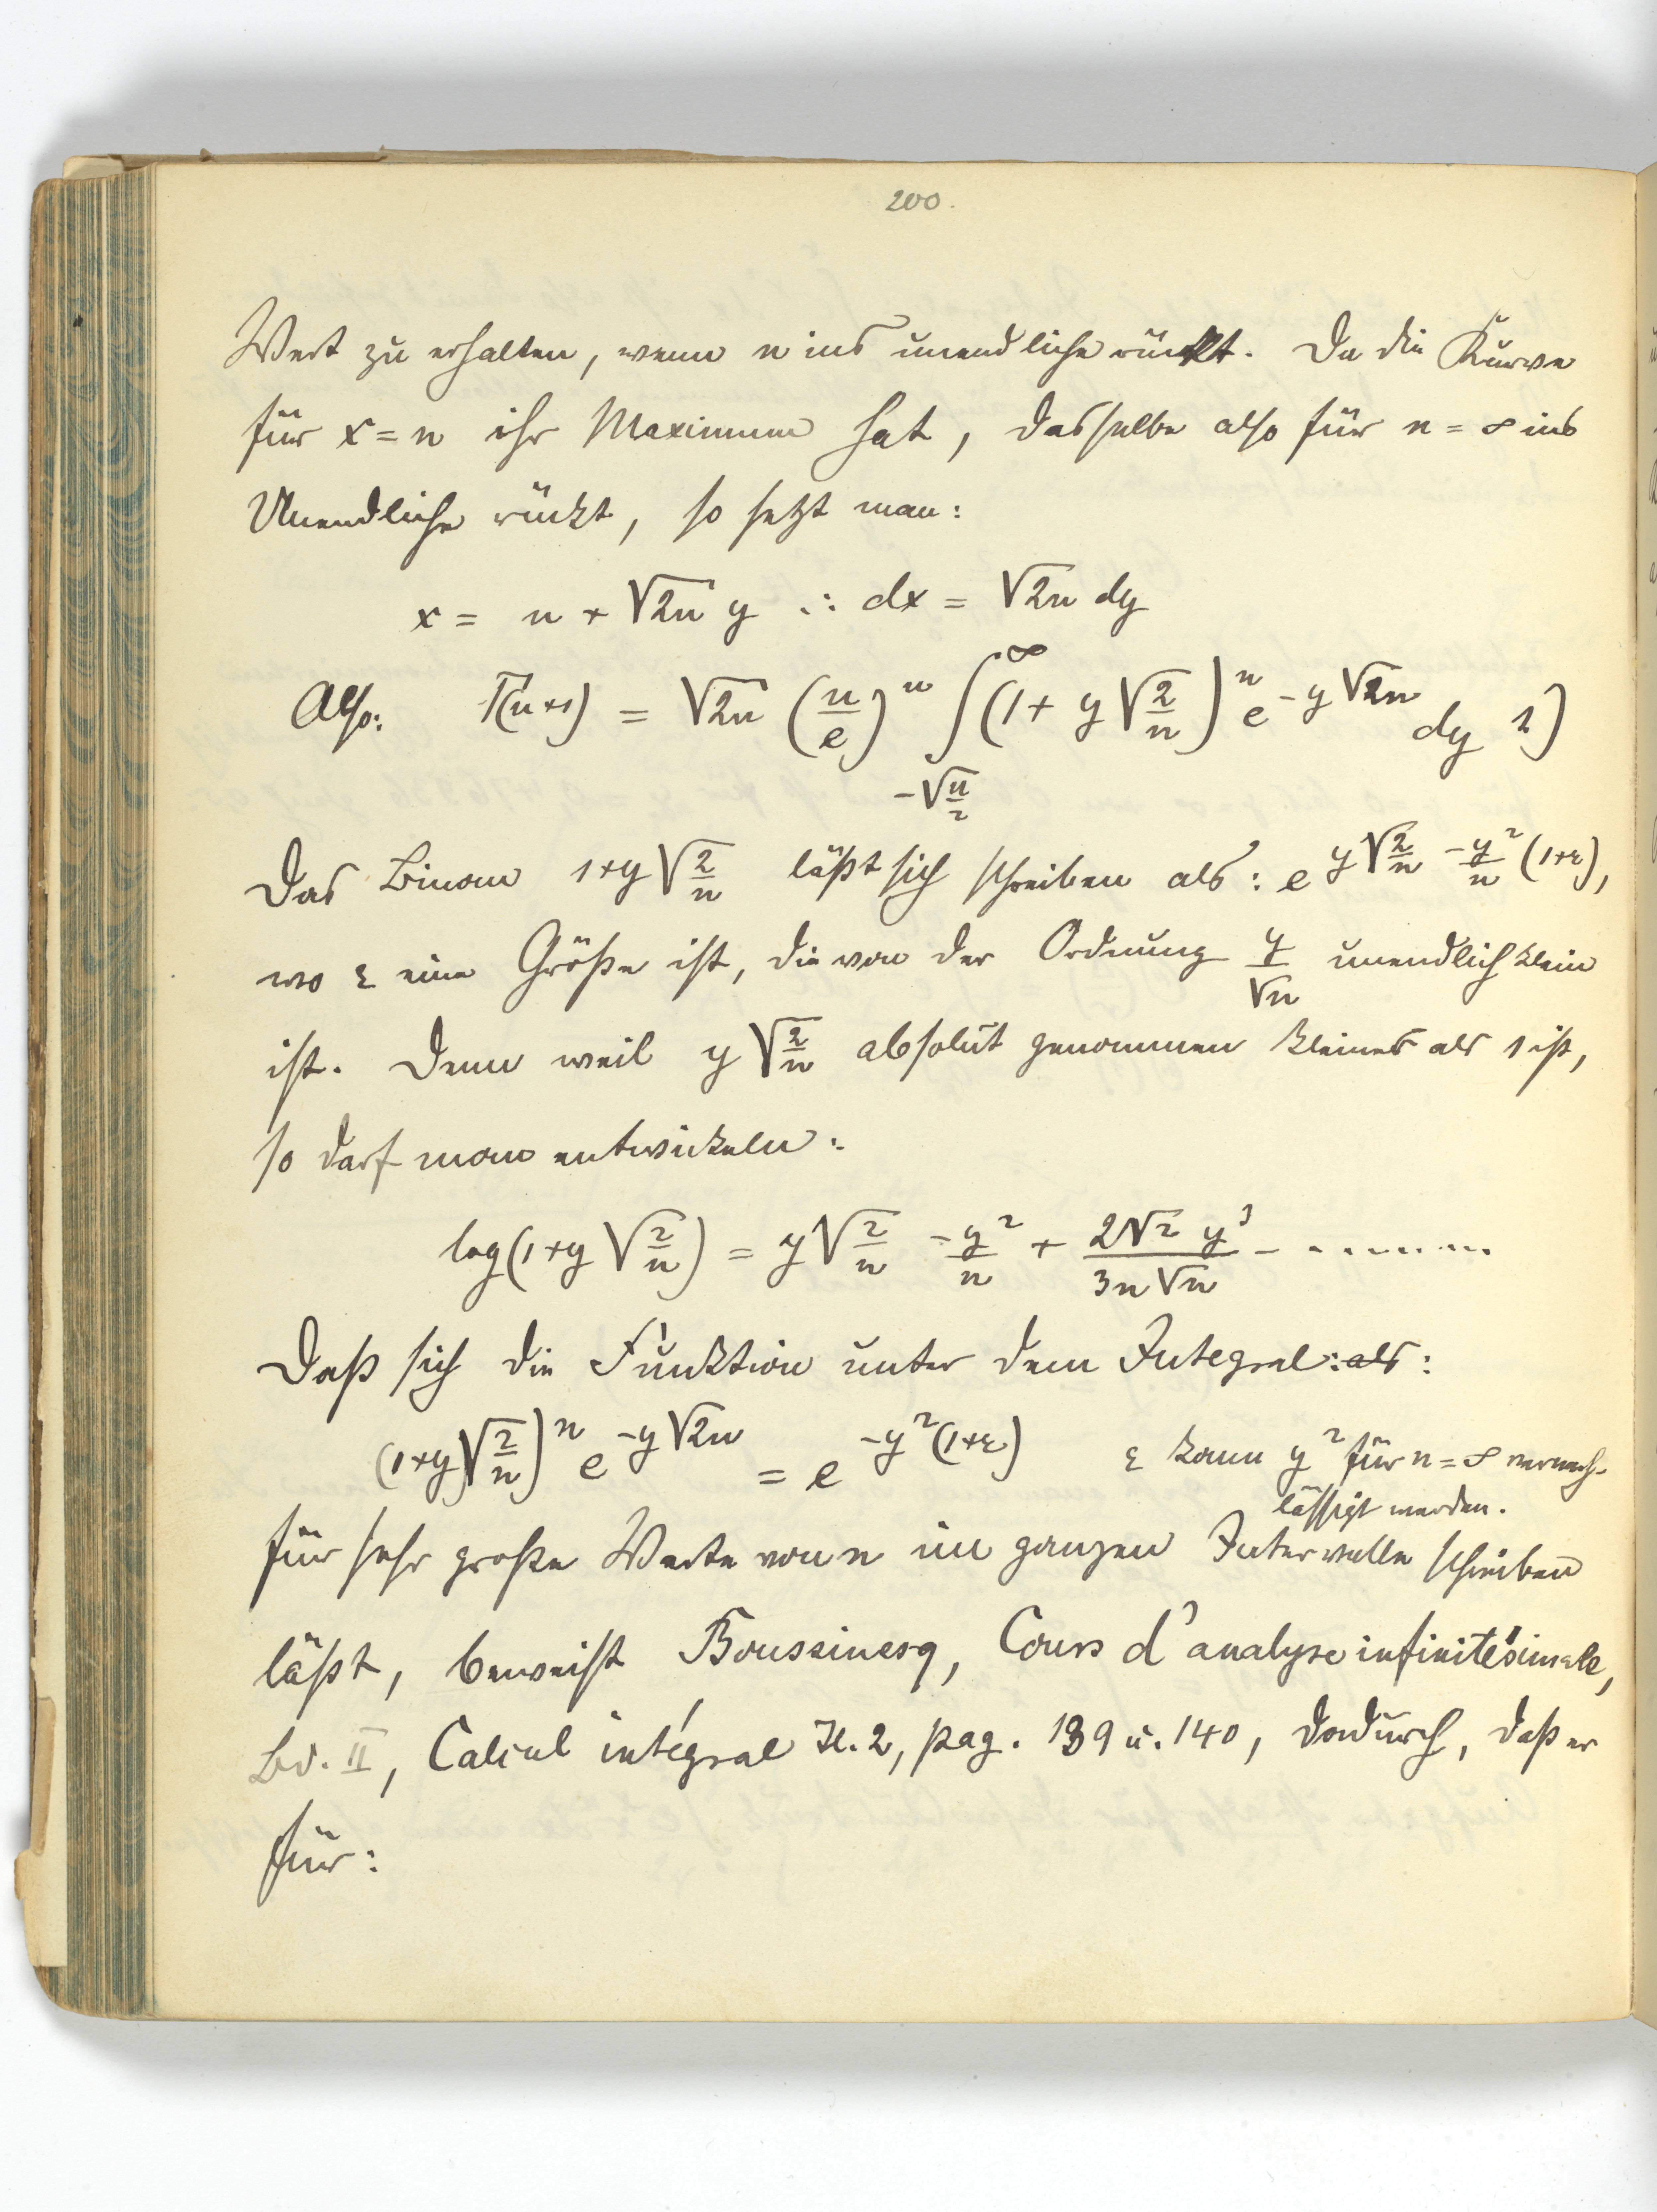 200.
Wert zu erhalten, wenn n ins unendliche rückt. Da die Kurve
für x = n ihr Maximum hat, dasselbe also für n = ∞ ins
Unendliche rückt, so setzt man:
x = n + √2n y ∴ dx = √2n dy
Also: Γ(n+1) = √2n (n/e)^n ∫_{-√(n/2)}^{∞} (1 + y √(2/n))^n e^{-y√2n} dy 1)
Das Binom 1+y√(2/n) läßt sich schreiben als: e^{y√(2/n) - y²/n (1+ε)},
wo ε eine Größe ist, die von der Ordnung y/√n unendlich klein
ist. Denn weil y√(2/n) absolut genommen kleiner als 1 ist,
so darf man entwickeln:
log(1+y√(2/n)) = y√(2/n) - y²/n + 2√2 y³/(3n√n) - ........
Daß sich die Funktion unter dem Integral: als:
(1+y√(2/n))^n e^{-y√2n} = e^{-y²(1+ε)} ε kann y² für n = ∞ vernach-
lässigt werden.
für sehr große Werte von n im ganzen Intervalle schreiben
läßt, beweist Boussinesq, Cours d'analyse infinitésimale,
Bd. II, Calcul intégral H. 2, pag. 139 u. 140, dadurch, daß er
für: